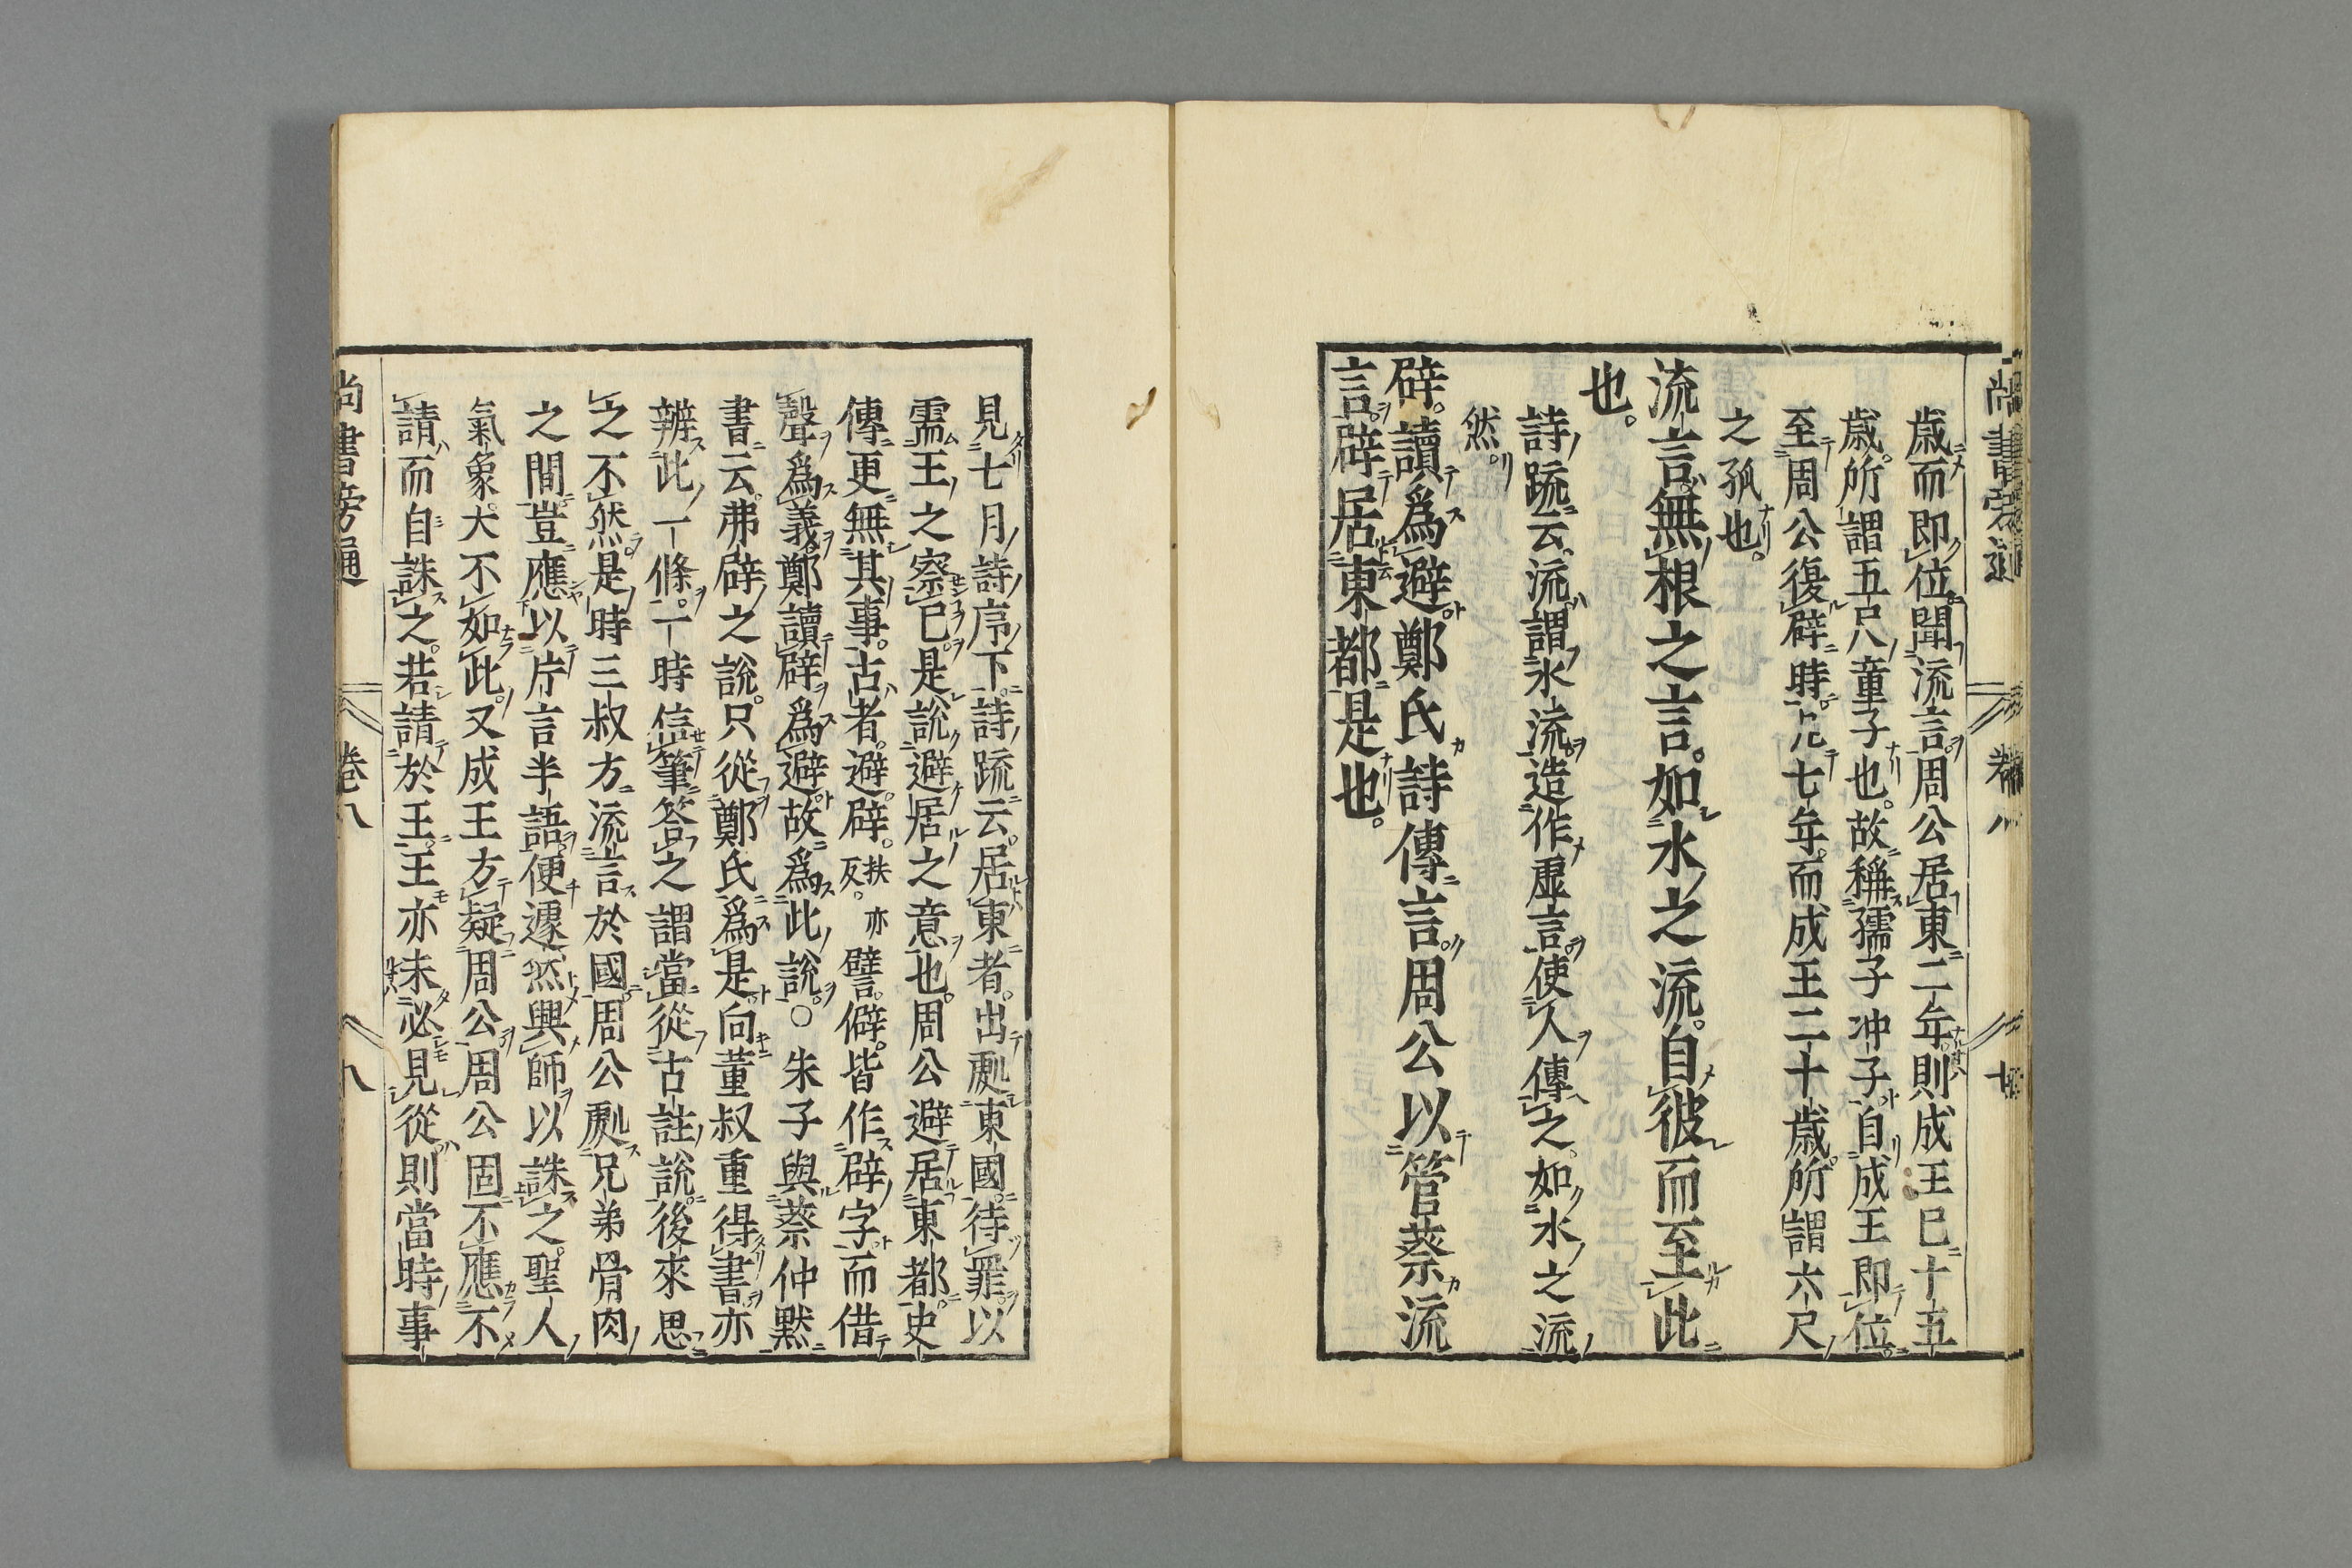 歳而即位聞流言周公居東二年則成王巳十五
歳所謂五尺童子也故稱孺子冲子自成王即位
至周公復辟時凡七年而成王二十歳所謂六尺
之孤也
流言無根之言如水之流自彼而至此
也
詩疏云流謂水流造作虚言使人傳之如水之流
然
辟讀爲避鄭氏詩傳言周公以管蔡流
言辟居東都是也
見七月詩序下詩疏云居東者出處東國待罪以
需王之察己是說避居之意也周公避居東都史
傳更無其事古者避辟扶亦反譬僻皆作辟字而借
聲爲義鄭讀辟爲避故爲此說○朱子與蔡仲默
書云弗辟之說只從鄭氏爲是向董叔重得書亦
辨此一條一時信筆答之謂當從古註說後來思
之不然是時三叔方流言於國周公處兄弟骨肉
之間豈應以片言半語便遽然興師以誅之聖人
氣象大不如此又成王方疑周公周公固不應不
請而自誅之若請於王王亦未必見從則當時事
尚書旁通 卷八 八